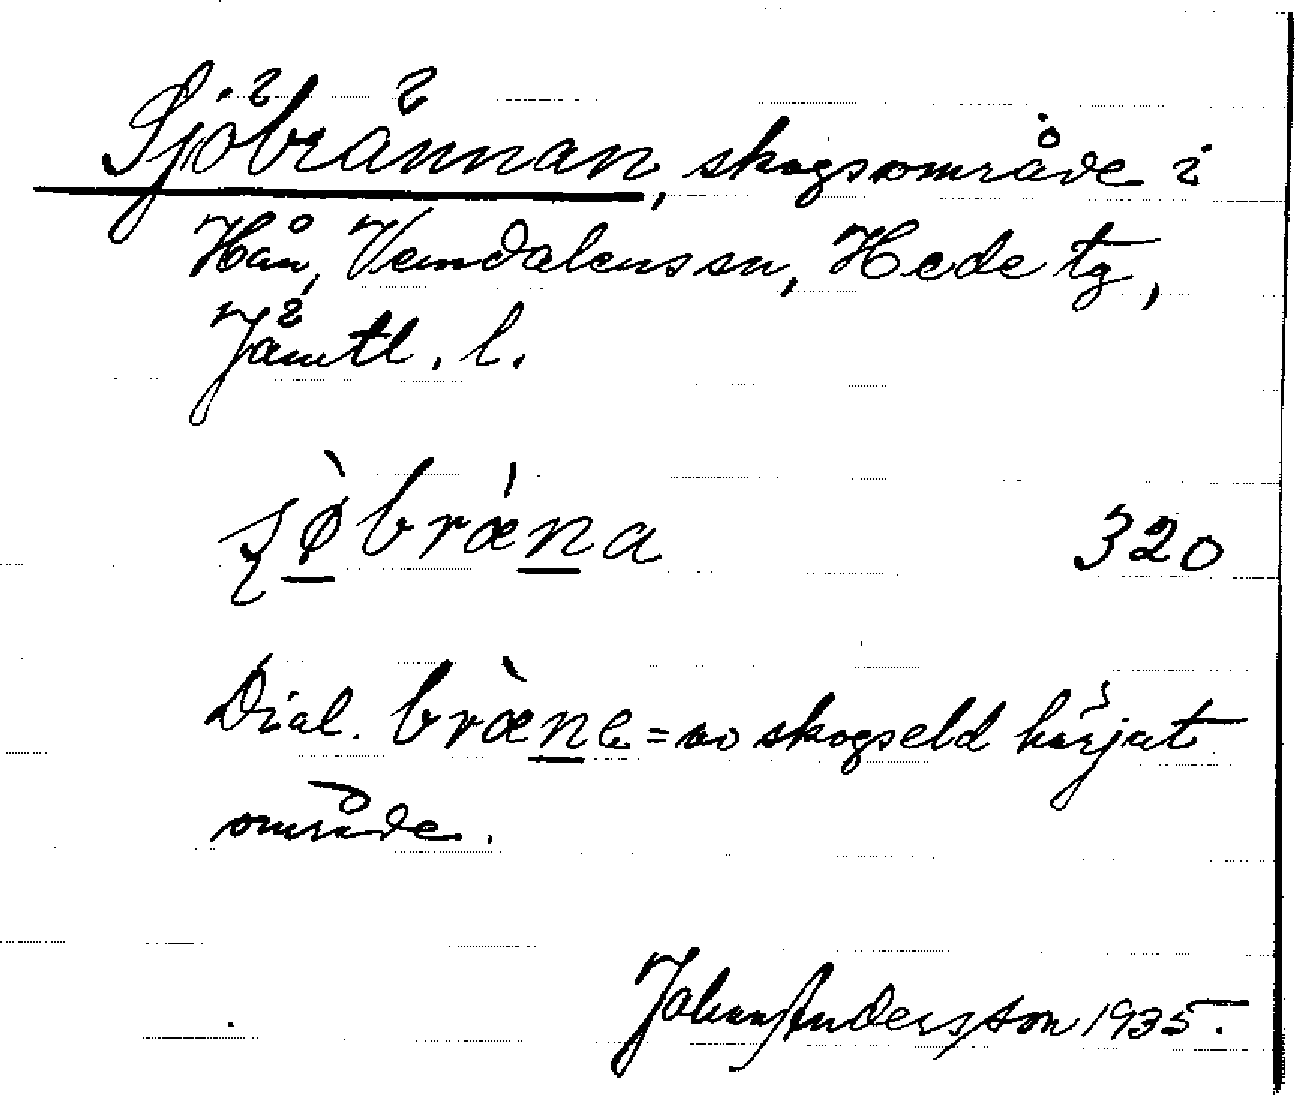 Sjöbrännan, skogsområde i
Hån, Vemdalens sn, Hede tg,
Jämtl. l.
ʂø̀bræ̀na 320
Dial. bræ̀ne = av skogseld härjat
område.
Johan Andersson 1935.